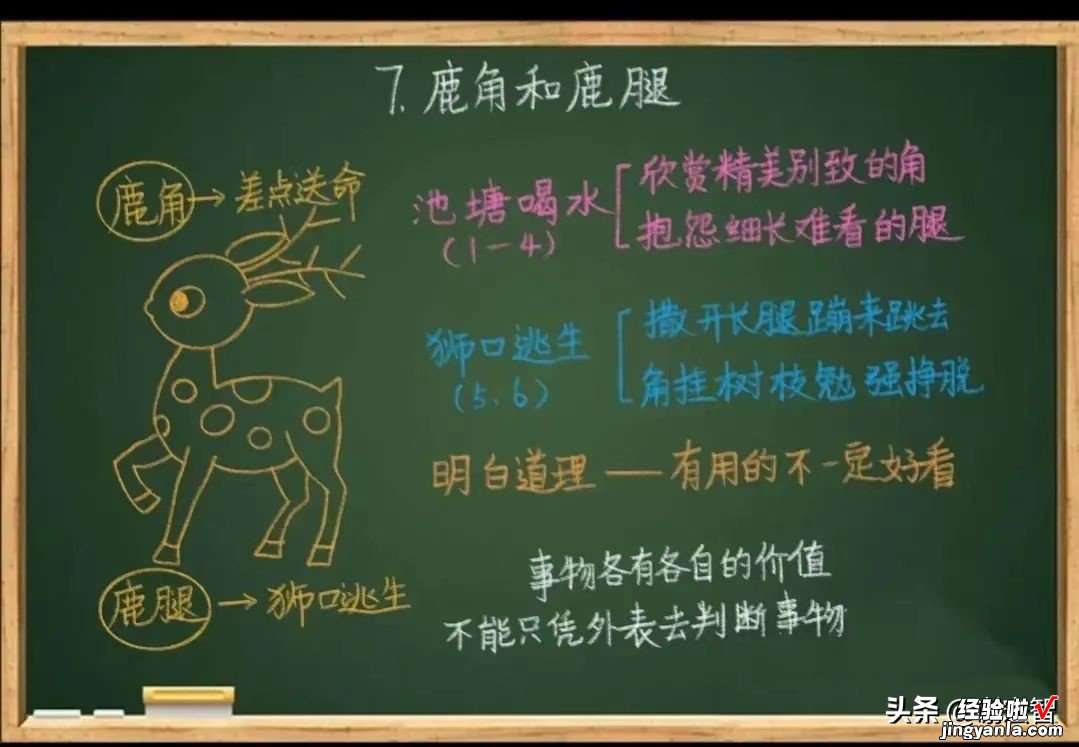 7.鹿角和鹿腿
鹿角→差点送命
池塘喝水
(1-4)
欣赏精美别致的角
抱怨细长难看的腿
狮口逃生
(5、6)
撒开长腿蹦来跳去
角挂树枝勉强挣脱
明白道理——有用的不一定好看
事物各有各自的价值
不能只凭外表去判断事物
鹿腿→狮口逃生
头条
经验啦√
智
jingyanla.com